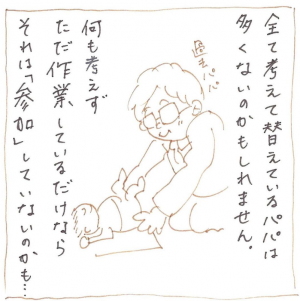 全て考えて替えているパパは
多くないのかもしれません。
過去パパ
何も考えず
ただ作業しているだけなら
それは「参加」していないのかも…